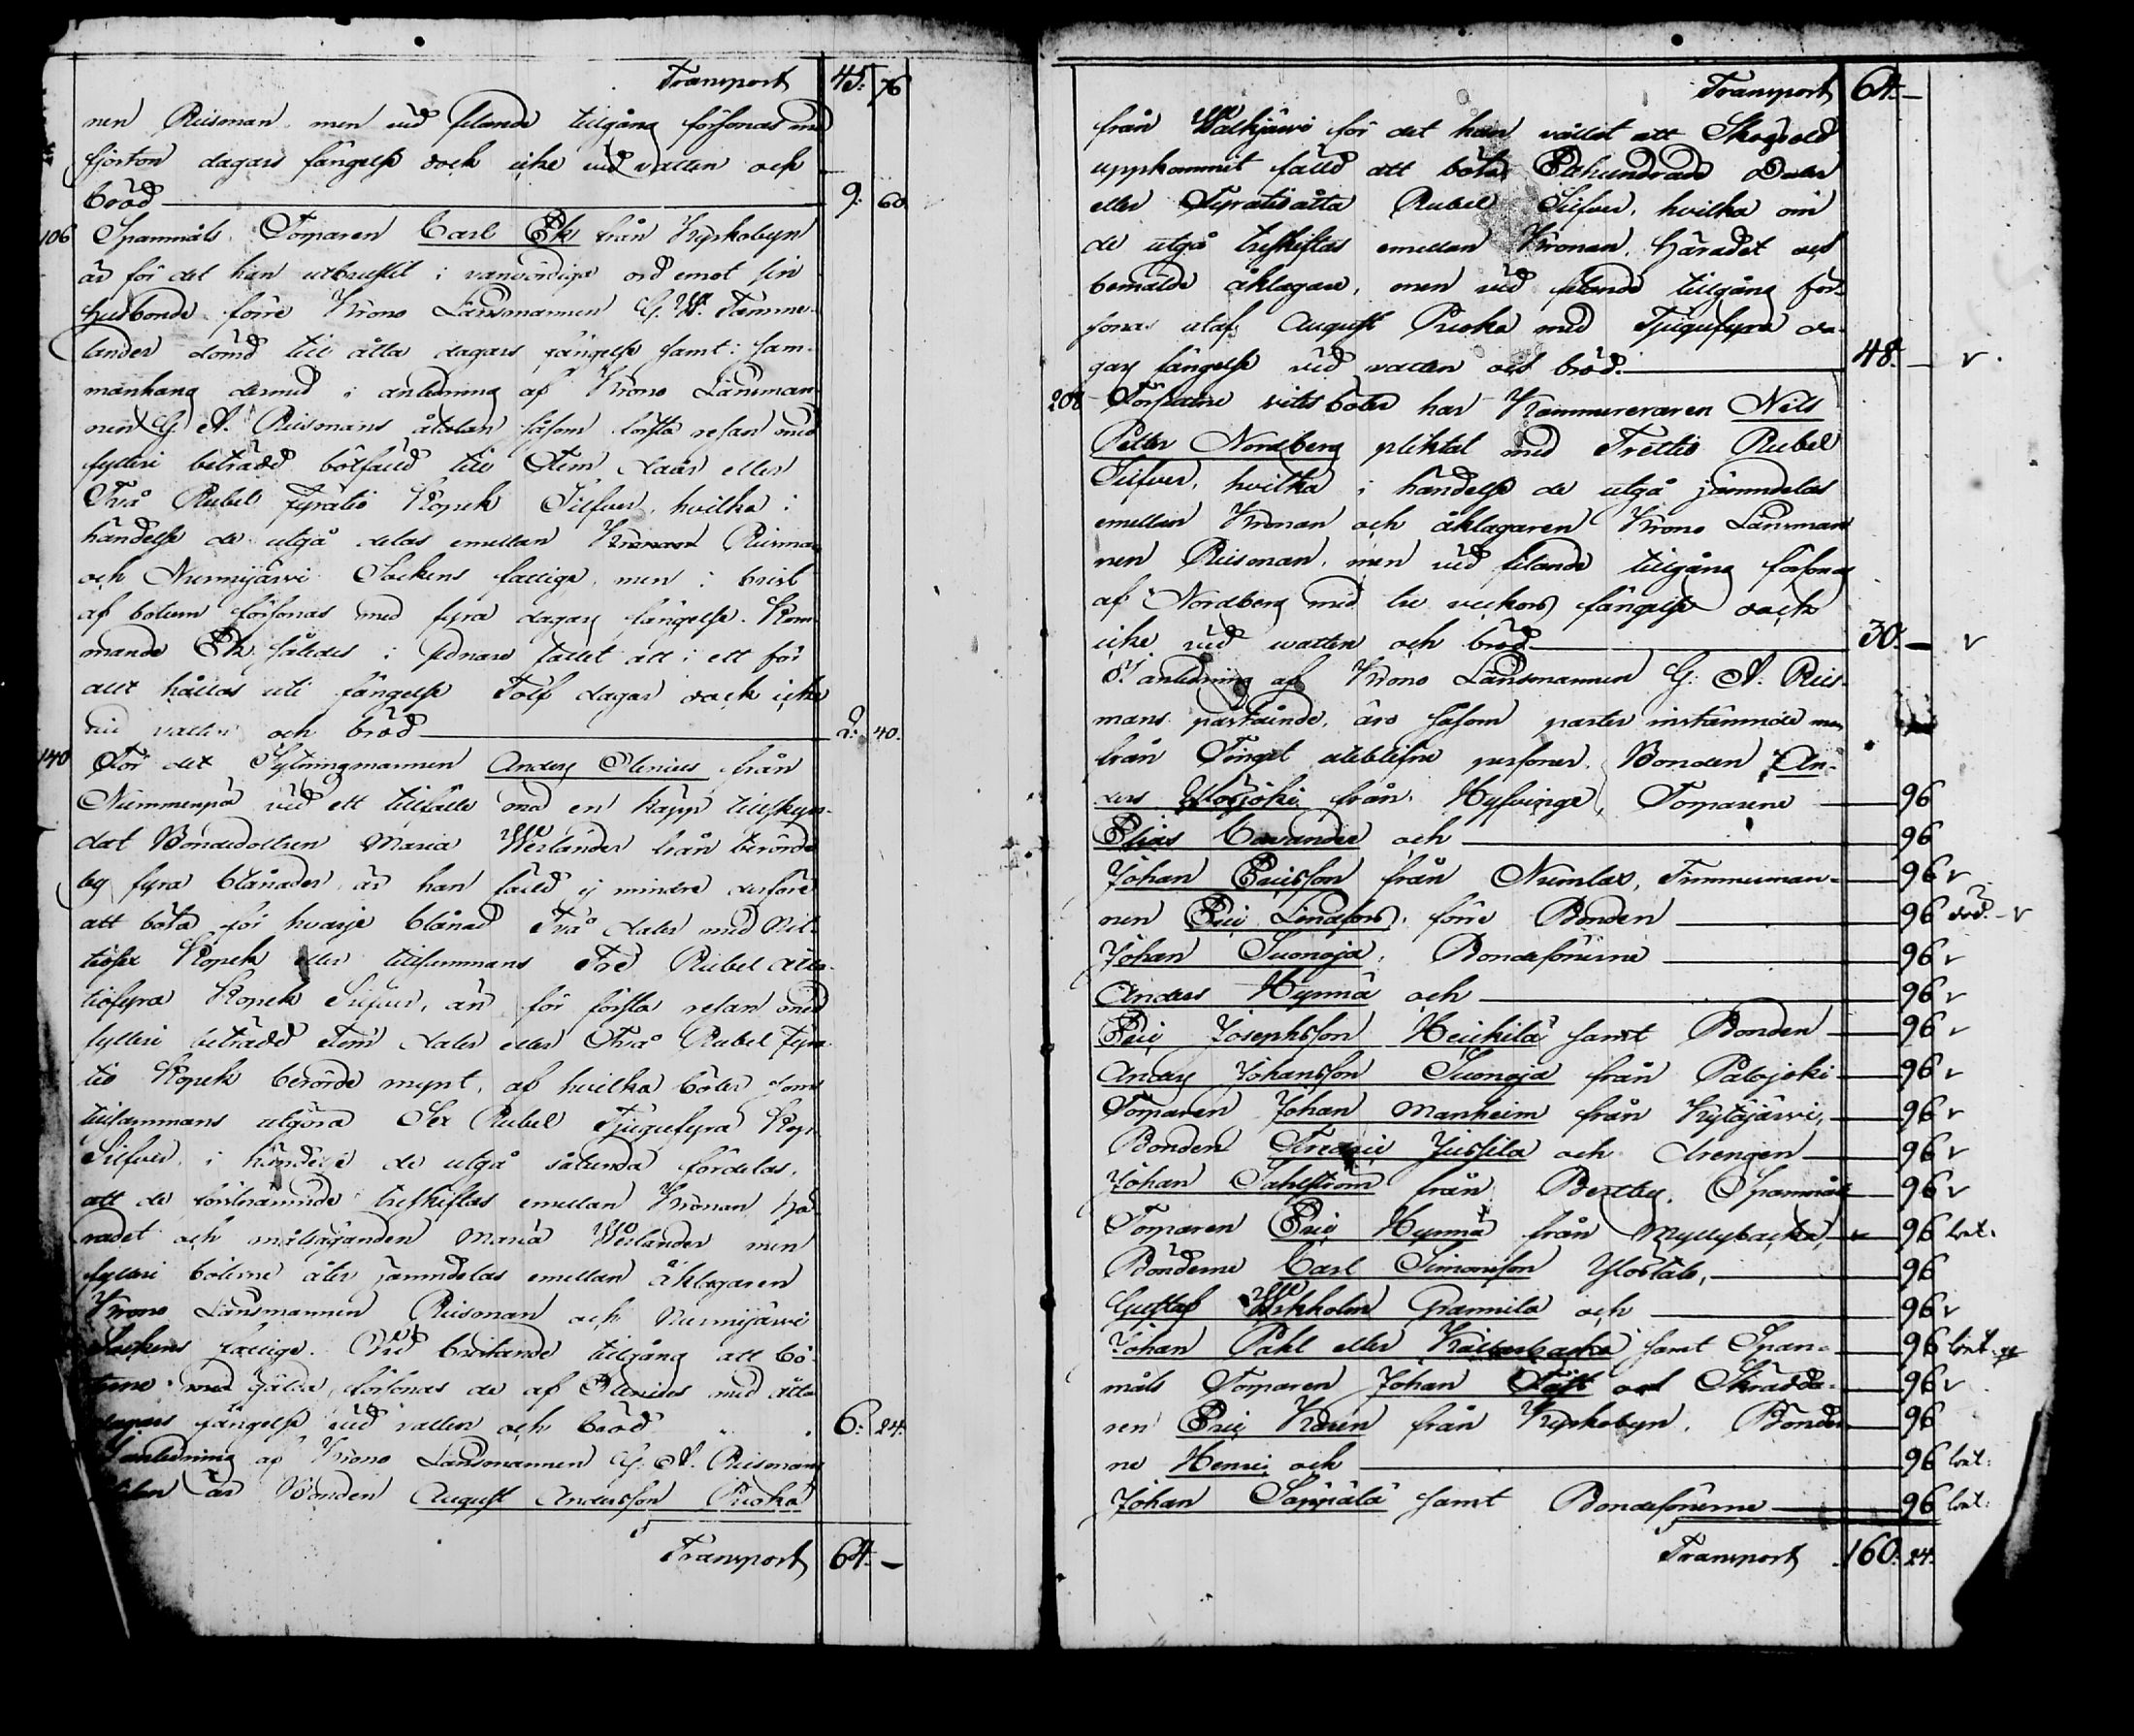 Transport 45. 76
nen Riisman, men vid felande tillgång försonas med
fjorton dagars fängelse dock icke vid vatten och
bröd 9. 60.
106 Spannmåls Torparen Carl Ek från Kyrkobyn
är för det han utbrustit i vanvördiga ord emot sin
husbonde förre Krono Länsmannen G. W. Tamme-
lander dömd till åtta dagars fängelse samt i sam-
manhang dermed i anledning af Krono Länsman-
nen G. A. Riismans åtalan såsom första resan med
fylleri beträdd bötfälld till Fem daler eller
Två Rubel fyratio Kopek Silfver, hvilka i
händelse de utgå delas emellan Riisman
och Nurmijärvi Sockens fattige, men i brist
af botum försonas med fyra dagars fängelse. Kom-
mande Ek således i sednare fallet att i ett för
allt hållas uti fängelse Tolf dagar dock icke
vid vatten och bröd 2. 40.
140 För det Sytningmannen Anders Olenius från
Nummenpä vid ett tillfälle med en käpp tillskyn-
dat Bondedottren Maria Weslander från berörde
by fyra blånader, är han fälld ej mindre derföre
att böta för hvarje blånad Två daler med Nit-
tiosex Kopek eller tillsammans Tre Rubel Åtta-
tiofyra Kopek Silfver, än för första resan med
fylleri beträdd Fem daler eller Två Rubel Fyra-
tio Kopek berörde mynt, af hvilka böter som
tillsammans utgöra Sex Rubel Tjugufyra Kop.
Silfver, i händelse de utgå sålunda fördelas,
att de förstnämnde treskiftas emellan Kronan hä-
radet och målsäganden Maria Weslander men
fylleri böterne åter jämndelas emellan åklagaren
Krono Länsmannen Riisman och Nurmijärvi
Sockens fattige. Vid bristande tillgång att bö-
terne med gälda, försonas de af Olenius med åtta
dagars fängelse vid vatten och bröd 6. 24.
I anledning af Krono Länsmannen G. A. Riismans
åtalan är Bonden August Andersson Prioka
Transport 64. —
Transport 64. —
från Walkjärvi för det han vållat att Skogseld
uppkommit fälld att böta Etthundrade Daler
eller Fyratioåtta Rubel Silfver, hvilka om
de utgå treskiftas emellan Kronan, häradet och
bemälde åklagare, men vid felande tillgång för-
sonas utaf August Prioka med Tjugufyra da-
gars fängelse vid vatten och bröd. 48. — v
208 Förfallne vitesböter har Kammereraren Nils
Petter Nordberg pliktat med Trettio Rubel
Silfver, hvilka i händelse de utgå jämndelas
emellan Kronan och åklagaren Krono Länsman
nen Riisman, men vid felande tillgång försonas
af Nordberg med tre veckors fängelse dock
icke vid watten och bröd 30. — v
I anledning af Krono Länsmannen G. A. Riis-
mans påstående, äro såsom parter instämnde men
från Tinget uteblifne personer, Bonden An-
ders Yliojoki från Hyfvinge, Torparene 96
Elias Cavander och 96
Johan Ericsson från Numlax, Timmerman- 96 v
nen Eric Lindfors, förre Bonden 96 död. v
Johan Suonoja, Bondesönerne 96 v
Anders Hynnä och 96 v
Eric Josephsson Heickilä samt Bonden 96 v
Anders Johansson Suonoja från Palojoki 96 v
Torparen Johan Manheim från Kytäjärvi, 96 v
Bonden Fredric Jussila och drengen 96 v
Johan Sahlström från Bertby, Spannmåls 96 v
Torparen Eric Hynnä från Myllybacka, 96
Bönderne Carl Simonsson Yliostalo, 96
Gustaf Grannila och 96 v
Johan Pahl eller samt Span- 96
måls Torparen Johan och Skrädda- 96 v
ren Eric Karen från Kyrkobyn, Bönder- 96
ne Henric och 96
Johan Säppälä samt Bondesönerne 96
Transport 160. 24.